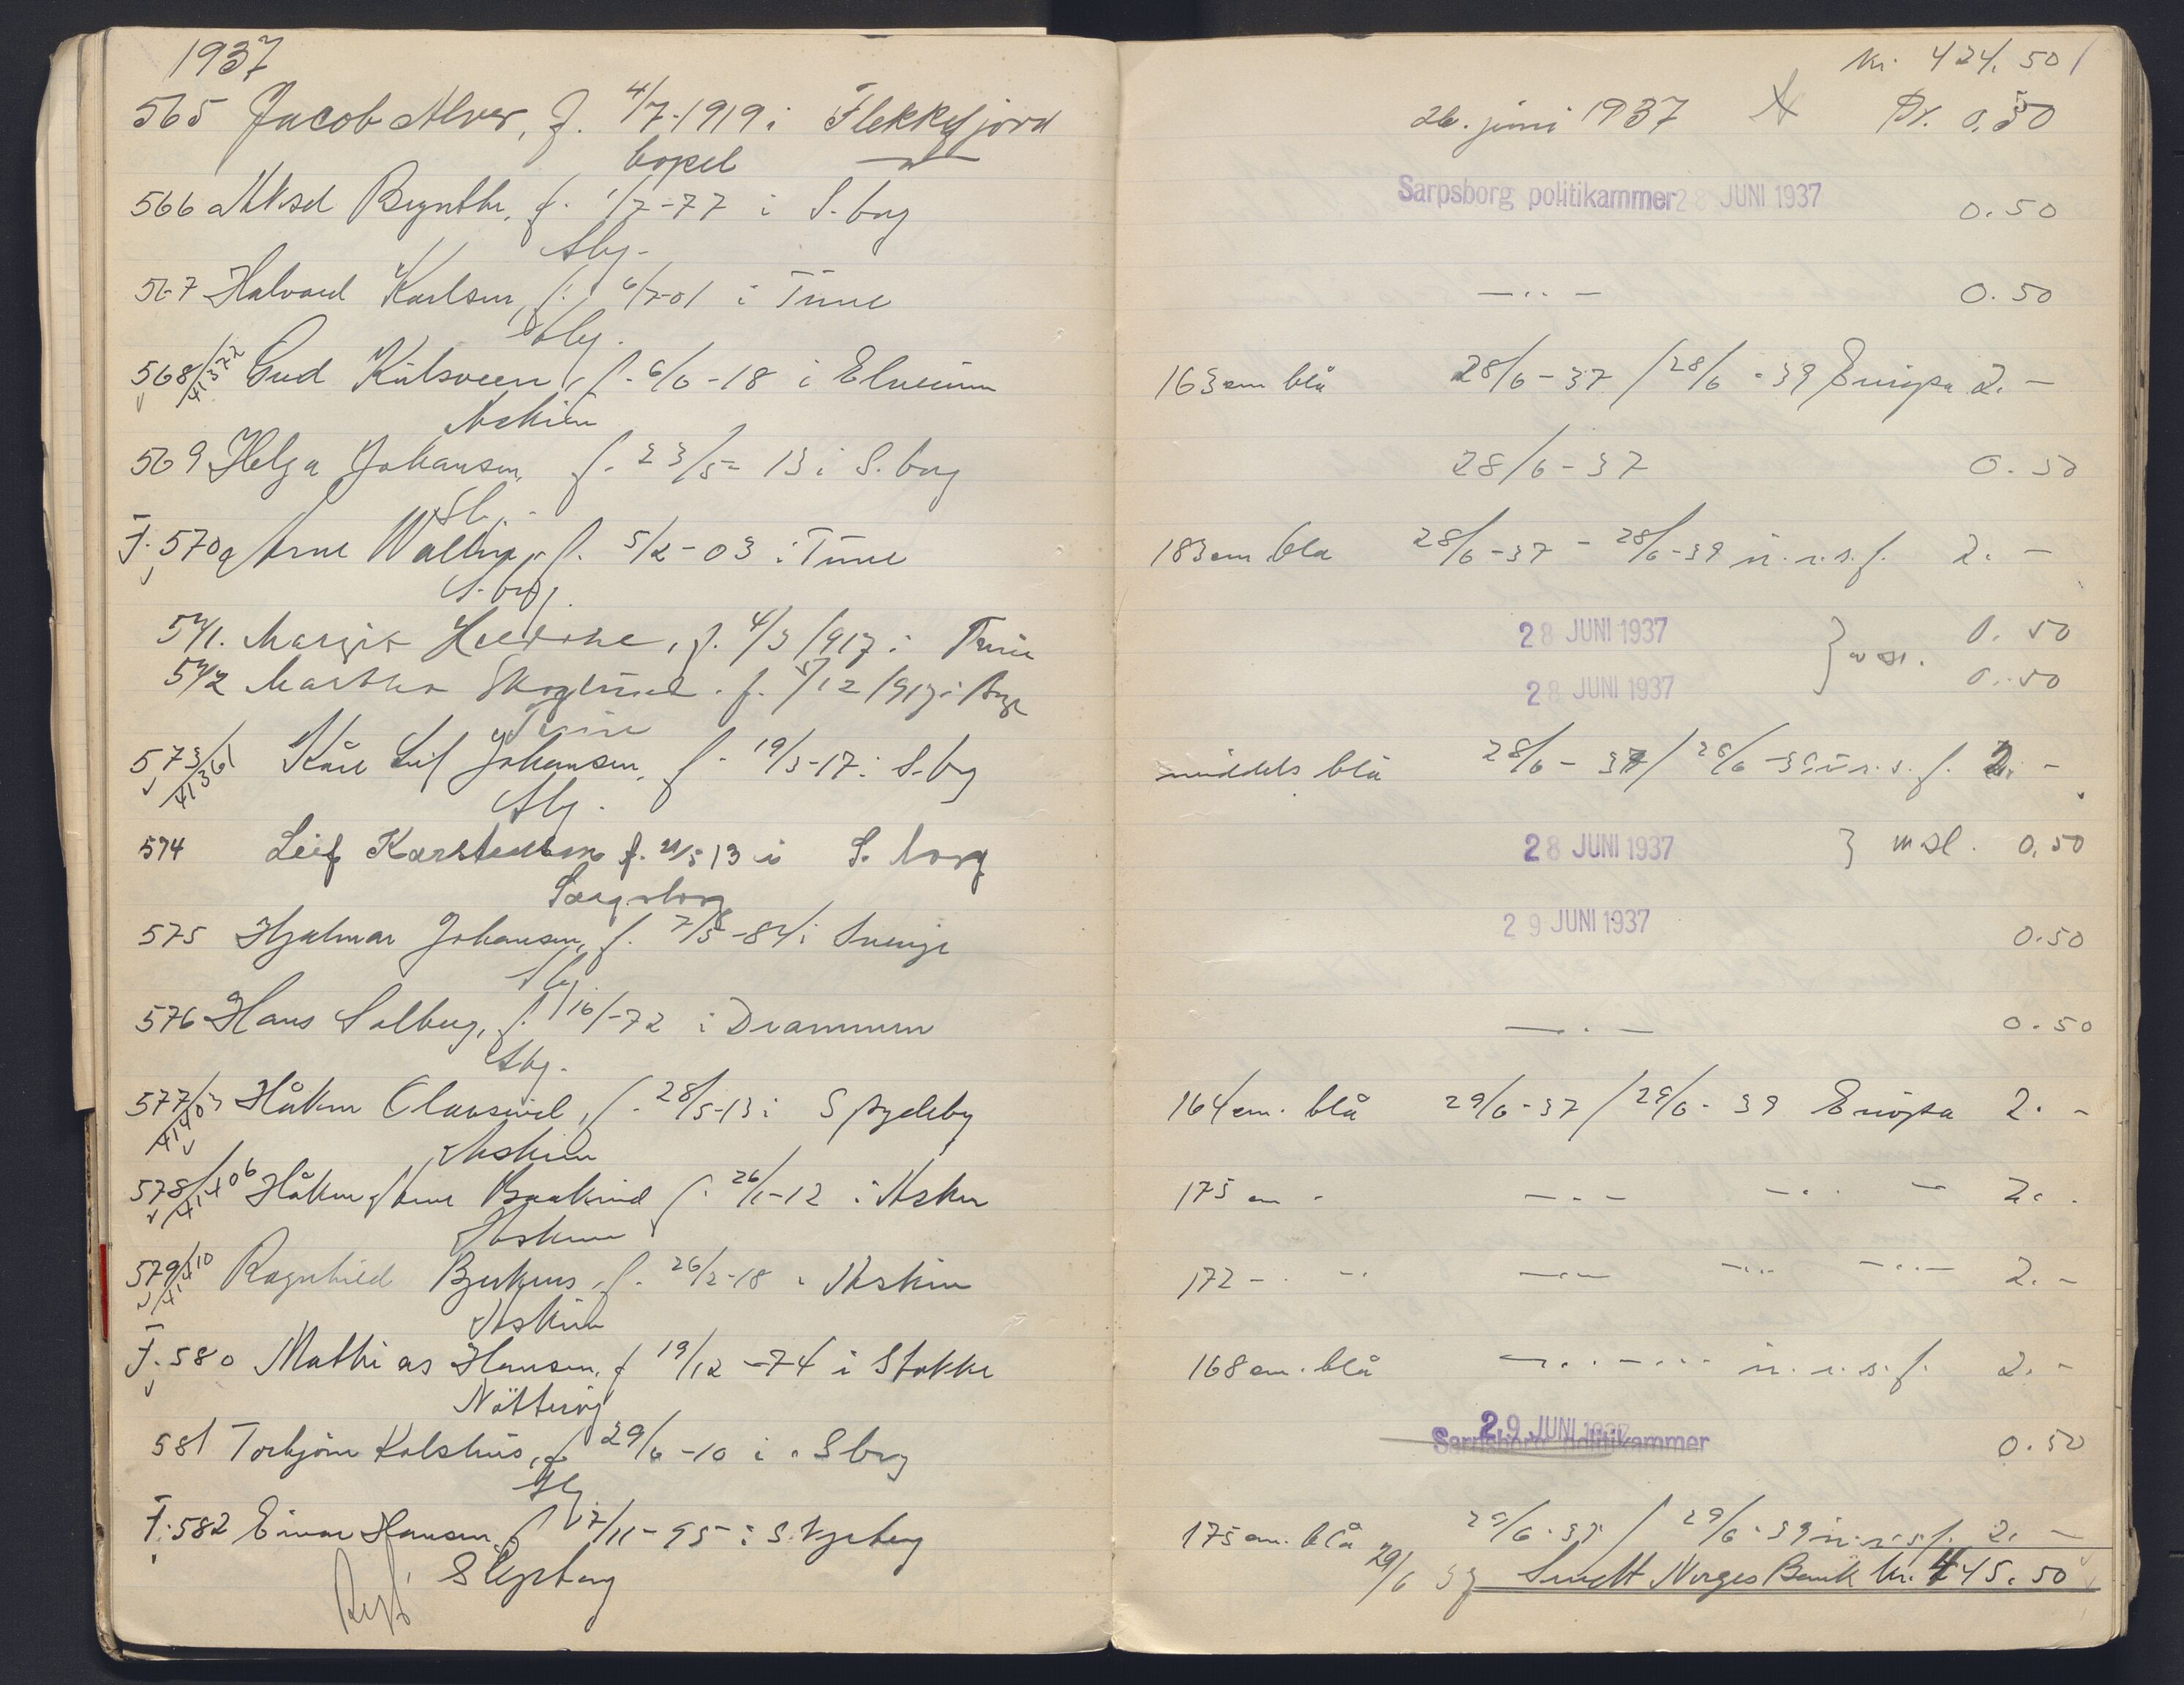 1937
565 Jacob Alver, f. 4/7-1919 i Flekkefjord
bopel
566 Aksel f. 1/7-77 i S.borg
Sbg.
567 Halvard Karlsen, f. 6/7-01 i Tune
Sbg.
568/41322 Gud f. 6/6-18 i Elverum
Askim
569 Helga Johansen, f. 23/5-13 i S.borg
Sbg.
F. 570 Arne f. 5/2-03 i Tune
S.borg.
571. Margit f. 4/3 1917 i Tune
572 Martha Skoglund. f. /12 1917 i
Tune
573/41361 Kåre Leif Johansen, f. 19/3-17 i S.bg
Sbg.
574 Leif Karstensen f. 21/5 13 i S.borg
Sarpsborg
575 Hjalmar Johansen, f. 7/5-84 i Sverige
Sbg.
576 Hans Solberg, f. 16/-72 i Drammen
Sbg.
577/41403 Håkon Olavsrud, f. 28/5-13 i Spydeberg
Askim
578/41406 Håkon Arne f. 26/1-12 i Askim
Askim
579/41410 Ragnhild f. 26/2-18 i Askim
Askim
F. 580 Mathias Hansen, f 19/12-74 i Stokke
Nötteröy
581 Torbjörn Kolshus, f 29/6-10 i Sbrg
Sbg
F. 582 Einar Hansen, f 17/11-95 i Skjeberg
Skjeberg
Kr. 424.50
26. juni 1937 Kr. 0.50
Sarpsborg politikammer 28 JUNI 1937 0.50
— .. — 0.50
163 cm blå 28/6-37 / 28/6-39 Europa 2.—
28/6-37 0.50
183 cm. blå 28/6-37 - 28/6-39 u.r.s.f. 2.—
28 JUNI 1937 } 0.50
28 JUNI 1937 0.50
middels blå 28/6-37 / 28/6-39 u.r.s.f. 2.-
28 JUNI 1937 } msl. 0.50
29 JUNI 1937 0.50
— . — 0.50
164 cm. blå 29/6-37 / 29/6-39 Europa 2.-
175 cm - — . — — .. — 2.-
172 - - — .. — — .. — — .. — 2.-
168 cm. blå — .. — ... u.r.s.f. 2.-
29 JUNI 1937 Sarpsborg politikammer 0.50
175 cm. blå 29/6-37 / 29/6-39 u.r.s.f. 2.—
29/6 37 Sendt Norges Bank kr. 445.50